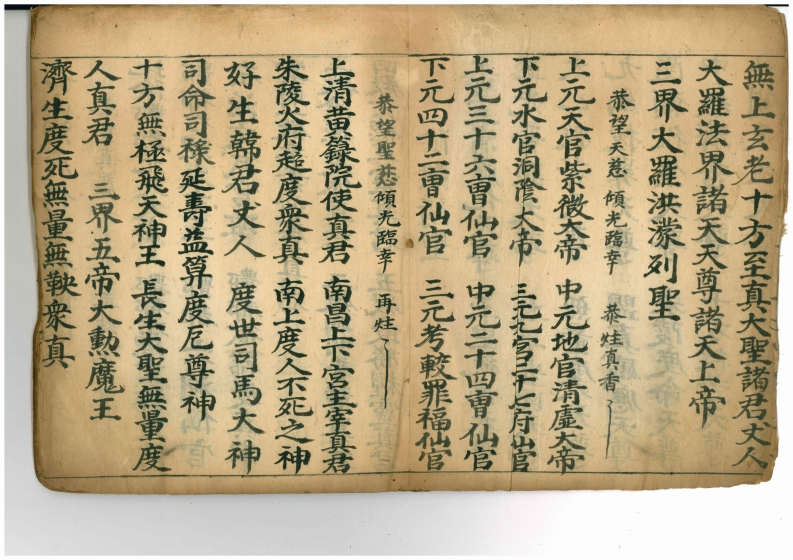 無上玄老十方至真大聖諸君丈人
大羅法界諸天天尊諸天上帝
三界大羅洪濛列聖
恭望天慈 傾光臨幸 恭炷真香
上元天官紫微大帝 中元地官清虛大帝
下元水官洞陰大帝 三元九宮二十七府仙官
上元三十六曺仙官 中元二十四曺仙官
下元四十二曺仙官 三元考較罪福仙官
恭望聖慈 傾光臨幸 再炷
上清黃籙院使真君 南昌上下宮主宰真君
朱陵火府超度衆真 南上度人不死之神
好生韓君丈人 度世司馬大神
司命司祿延壽益算度厄尊神
十方無極飛天神王 長生大聖無量度
人真君 三界五帝大勳魔王
濟生度死無量無鞅衆真